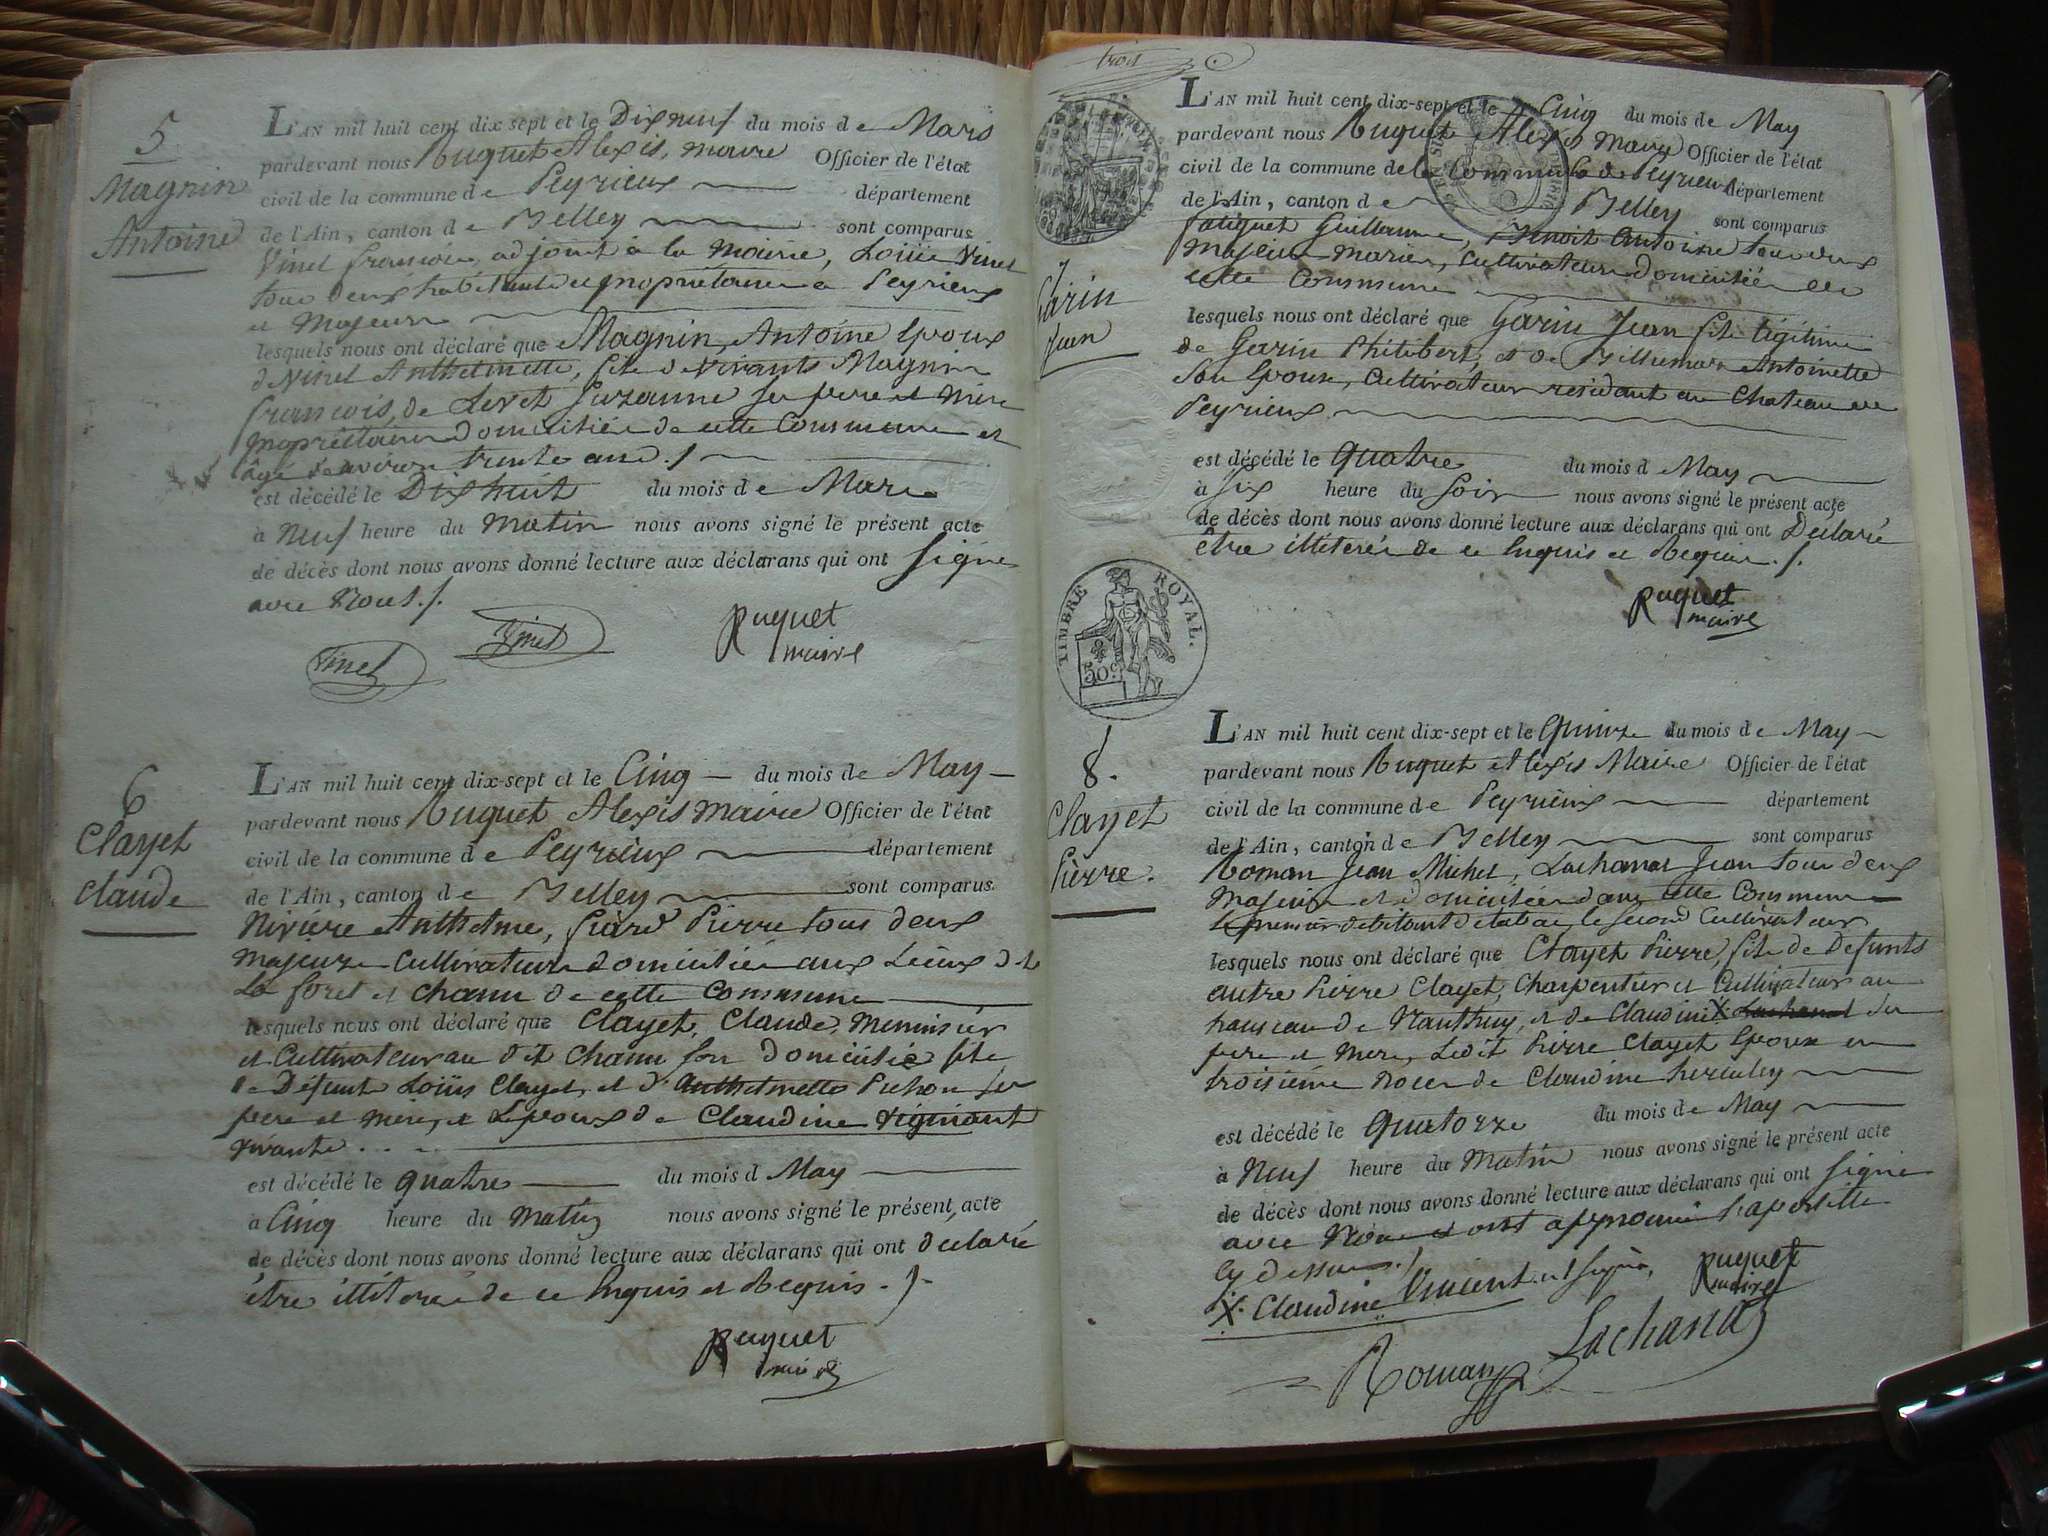 5
Magnin
Antoine
L'AN mil huit cent dix sept et le Dix neuf du mois de Mars
pardevant nous Ruguet Alexis, maire Officier de l'état
civil de la commune de Peyrieux département
de l'Ain, canton de Belley sont comparus
Vinet francois, adjoint à la mairie, Loüis Vinet
tous deux habitants et proprietaires a Peyrieux
et Majeurs
lesquels nous ont déclaré que Magnin, Antoine Epoux
de Vinet Anthelmette, fils de vivants Magnin
francois, de Levet Suzanne ses pere et mere
proprietaires domicilié de cette Commune et
âgé d'environ trente ans ./
est décédé le Dix huit du mois de Mars
à Neuf heure du Matin nous avons signé le présent acte
de décès dont nous avons donné lecture aux déclarans qui ont signé
avec Nous ./.
Vinet Vinet Ruguet
maire
6
Clayet
Claude
L'AN mil huit cent dix-sept et le Cinq du mois de May
pardevant nous Ruguet Alexis maire Officier de l'état
civil de la commune de Peyrieux département
de l'Ain, canton de Belley sont comparus
Rivière Anthelme, Pierre tous deux
majeurs Cultivateurs domicilié aux Lieux de
La foret et chanu de cette Commune
lesquels nous ont déclaré que Clayet, Claude, Menuisier
et Cultivateur au dit chanu son domicile fils
de Defunt Loüis Clayet, et d'Anthelmette Pichon ses
pere et mere, et Lepoux de Claudine
vivante . . .
est décédé le quatre du mois d May
à Cinq heure du Matin nous avons signé le présent acte
de décès dont nous avons donné lecture aux déclarans qui ont déclaré
être illiteré de ce Enquis et Requis . /.
Ruguet
maire
trois
7
Garin
Jean
L'AN mil huit cent dix-sept et le Cinq du mois de May
pardevant nous Ruguet Alexis Maire Officier de l'état
civil de la commune de la Commune de Peyrieux département
de l'Ain, canton de Belley sont comparus
Guillaume, Benoit Antoine tous deux
Majeurs Mariés, Cultivateurs domicilié en
cette Commune
lesquels nous ont déclaré que Garin Jean fils Légitime
de Garin Philibert, et de Antoinette
Son Epouse, Cultivateur residant au Chateau de
Peyrieux
est décédé le quatre du mois d May
à six heure du soir nous avons signé le présent acte
de décès dont nous avons donné lecture aux déclarans qui ont Declaré
être illiterés de ce Enquis et Requis ./.
Ruguet
maire
TIMBRE ROYAL.
50c
8.
Clayet
Pierre.
L'AN mil huit cent dix-sept et le Quinze du mois de May
pardevant nous Ruguet Alexis Maire Officier de l'état
civil de la commune de Peyrieux département
de l'Ain, canton de Belley sont comparus
Roman Jean Michel, Lachanas Jean tous deux
Majeurs et domicilié dans cette Commune
Le premier debitant de tabac, le second Cultivateur
lesquels nous ont déclaré que Clayet Pierre, fils de Defunts
autre Pierre Clayet, Charpentier et Cultivateur au
hameau de Nanthuy, et de Claudine X Lachanat ses
pere et mere, Ledit Pierre Clayet Epoux en
troisieme noces de Claudine
est décédé le quatorze du mois de May
à Neuf heure du Matin nous avons signé le présent acte
de décès dont nous avons donné lecture aux déclarans qui ont signé
avec Nous et ont approuvé l'apostille
cy dessous ./
X. Claudine Vincent et signé, Ruguet
maire
Lachanas
Roman